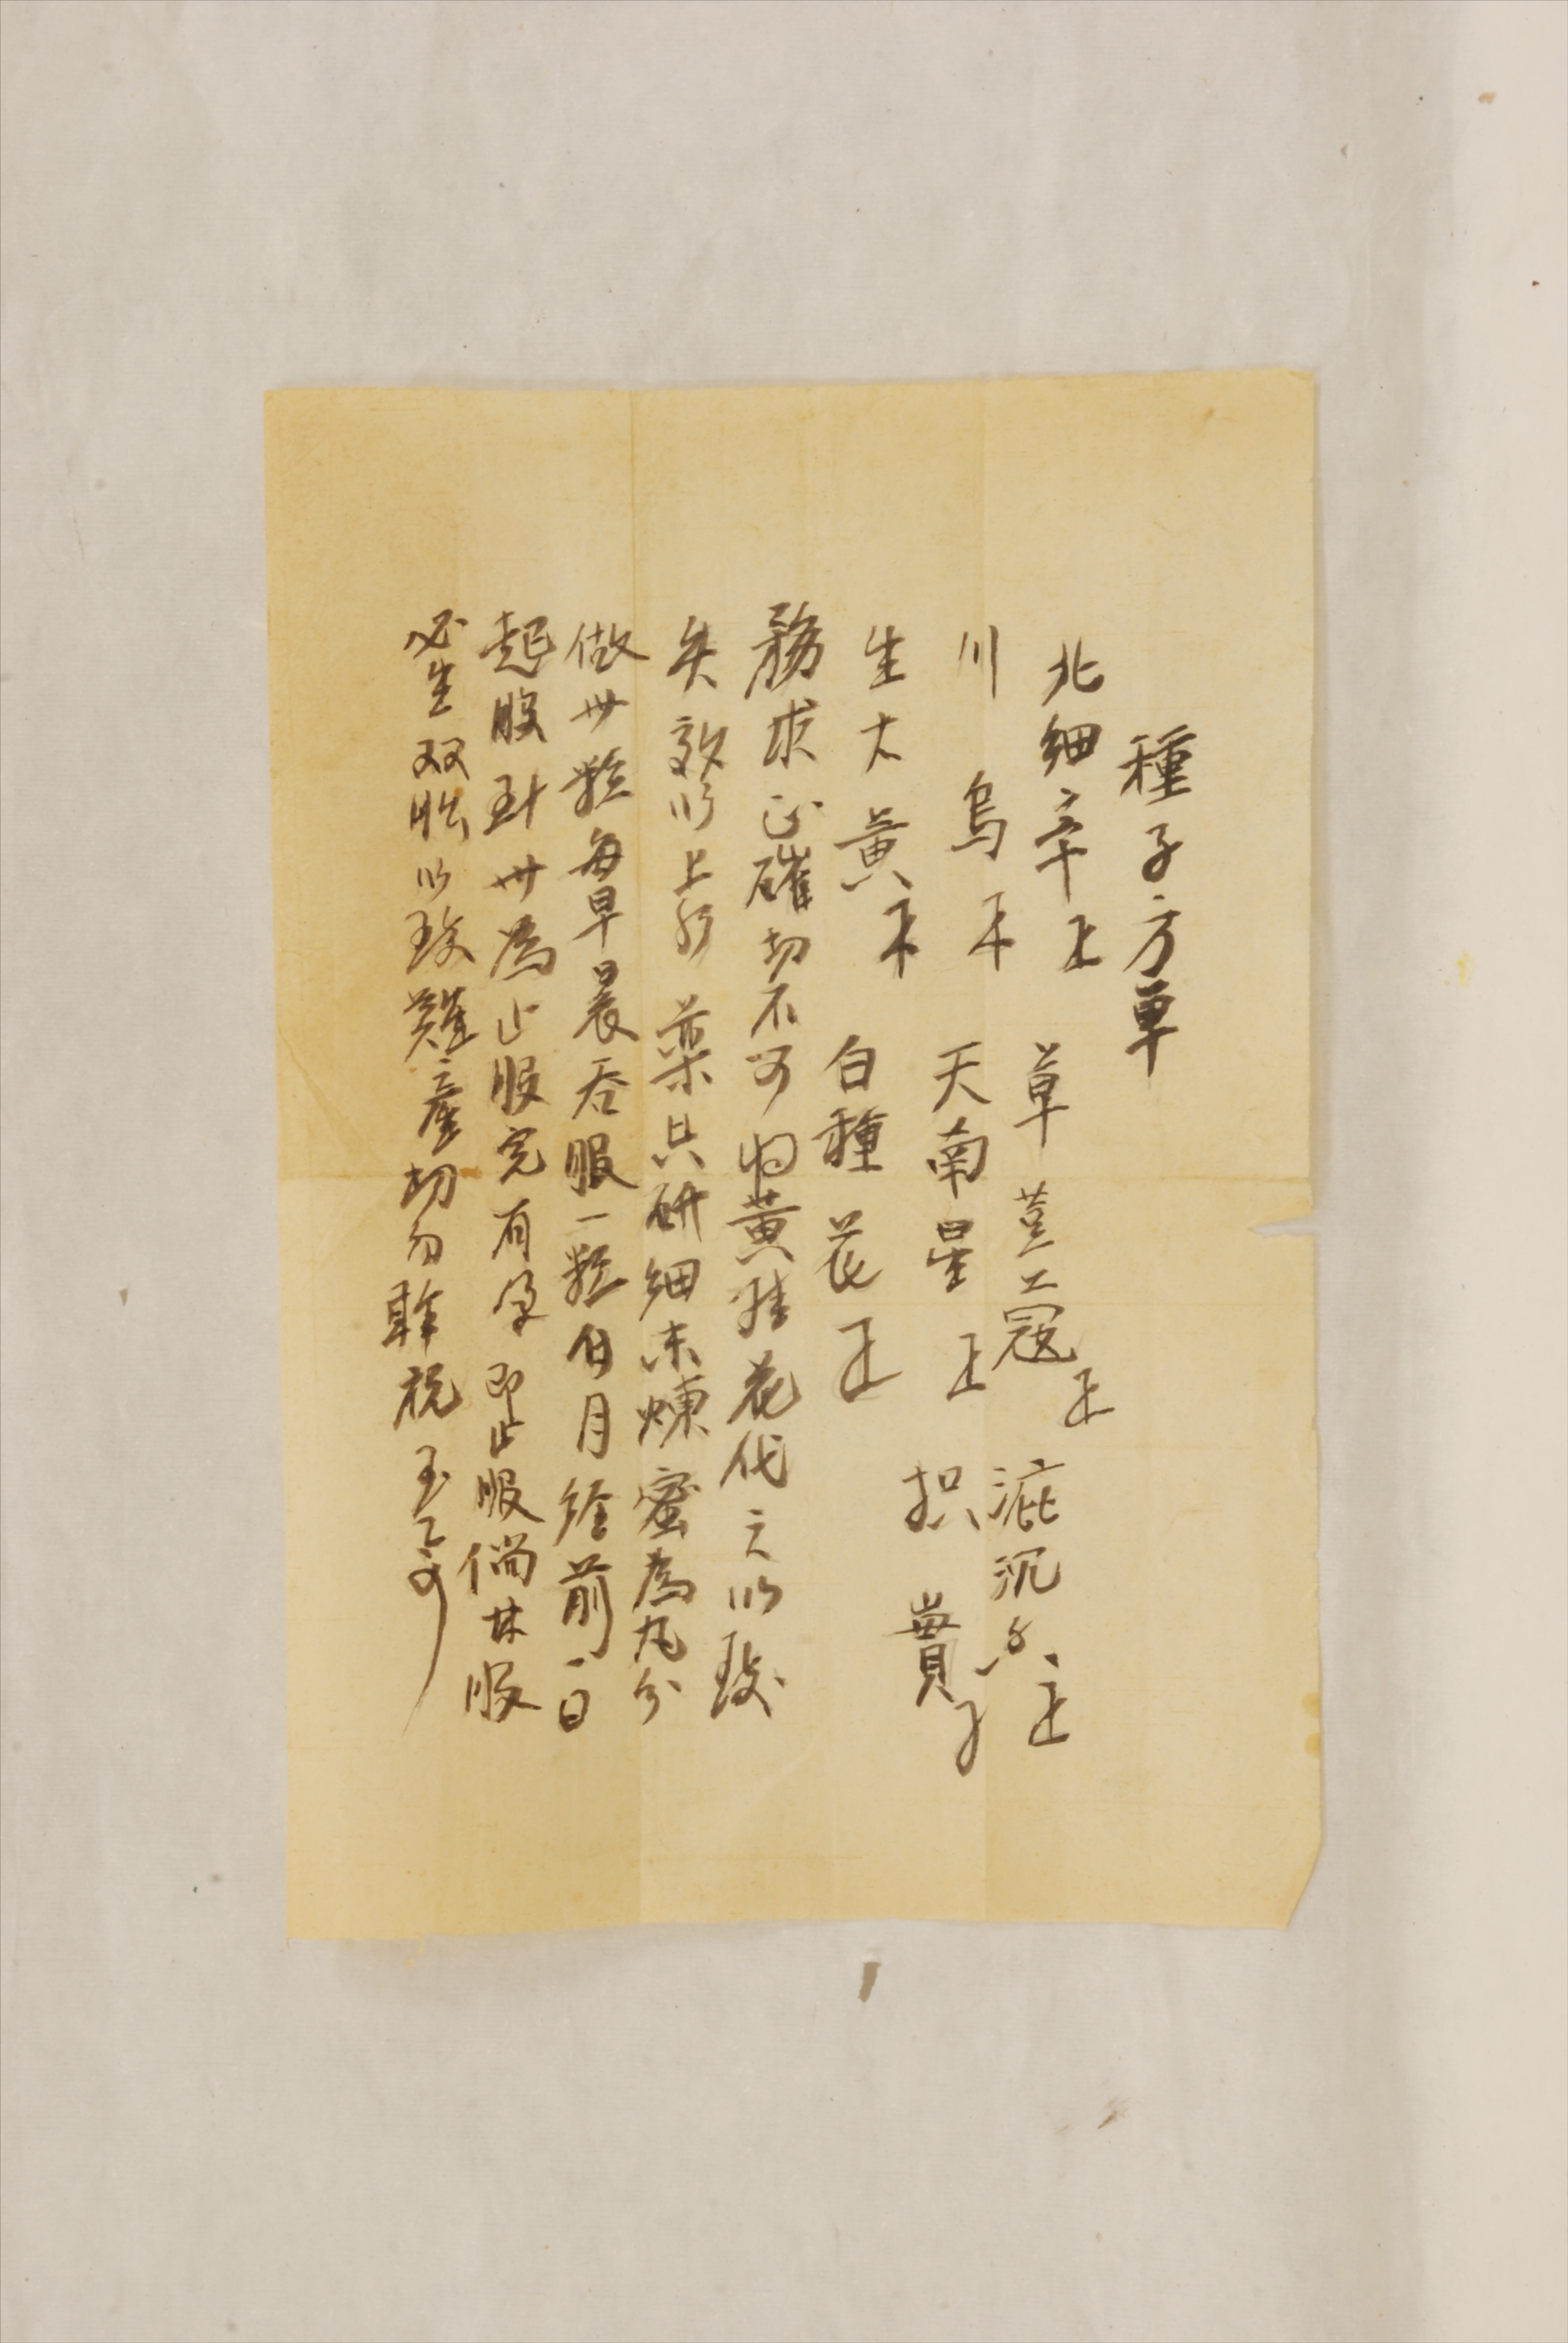 種子方單
北細辛 草荳蔻 泥沉
川烏 天南星 枳實
生大黃 白種花
務求正確切不可將黃種花代之以致
失效以上各藥共研細末煉蜜為丸分
做卅粒每早晨吞服一粒由月經前一日
起服到卅為止服完有孕即止服倘再服
必生双胎以致難產切勿